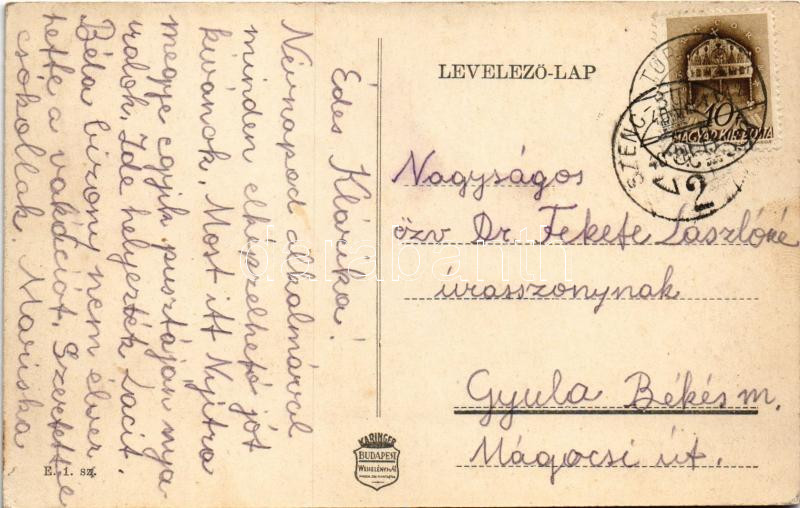 Édes Klárika!
Névnapod alkalmával
minden elképzelhető jót
kivánok. Most itt Nyitra
megye egyik pusztáján nya
ralok. Ide helyezték Lacit.
Béla bizony nem élvez
hette a vakációt. Szeretettel
csókollak. Mariska
E. 1. sz.
LEVELEZŐ-LAP
Nagyságos
özv Dr. Fekete Lászlóné
úrasszonynak
Gyula Békés m.
Mágocsi út.
10
MAGYAR KIR. POSTA
SZENC
2
KARINGER
BUDAPEST
darabanth